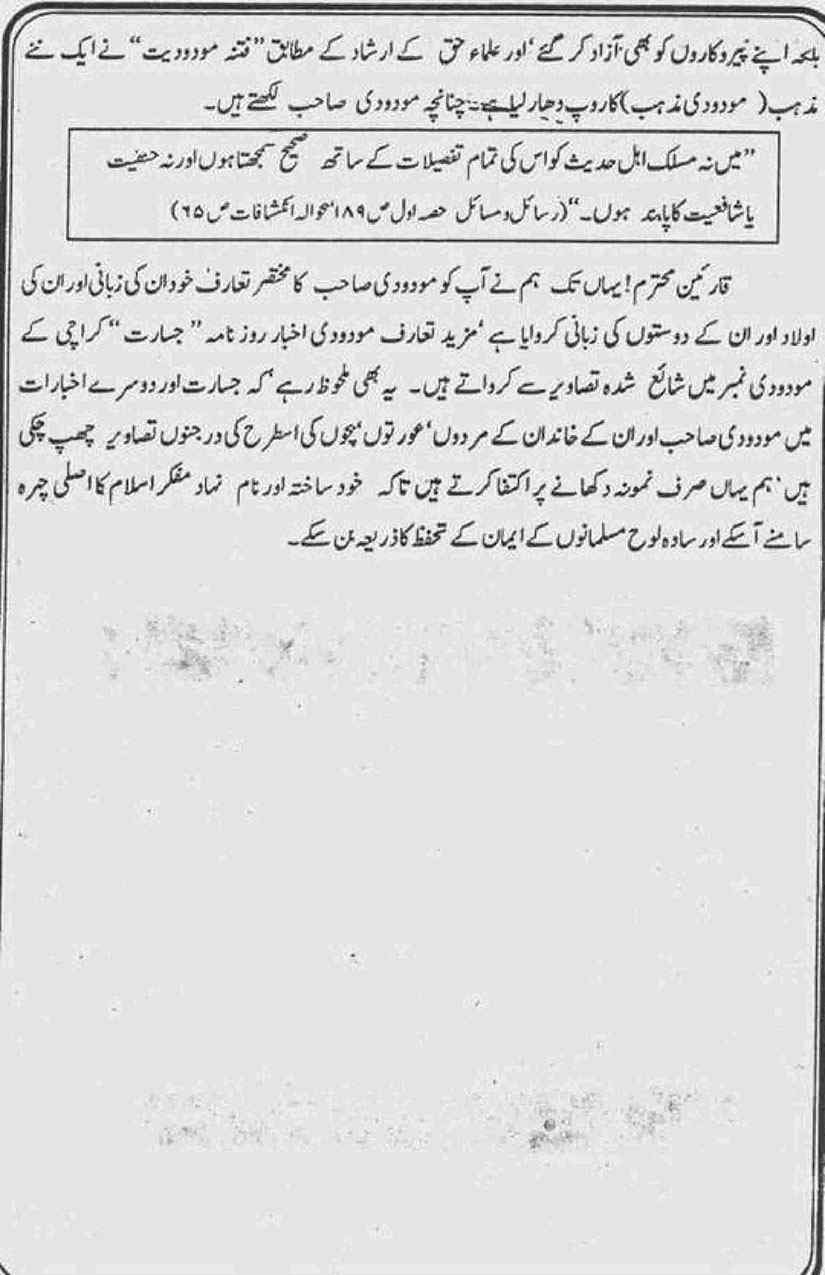 بلکہ اپنے پیروکاروں کو بھی آزاد کر گئے‘ اور علماء حق کے ارشاد کے مطابق ”فتنہ مودودیت“ نے ایک نئے
مذہب (مودودی مذہب) کا روپ دھار لیا ہے۔ چنانچہ مودودی صاحب لکھتے ہیں۔
”میں نہ مسلک اہل حدیث کو اس کی تمام تفصیلات کے ساتھ صحیح سمجھتا ہوں اور نہ حنفیت
یا شافعیت کا پابند ہوں۔“ (رسائل و مسائل حصہ اول ص ۱۸۹ بحوالہ انکشافات ص ۶۵)
قارئین محترم! یہاں تک ہم نے آپ کو مودودی صاحب کا مختصر تعارف خود ان کی زبانی اور ان کی
اولاد اور ان کے دوستوں کی زبانی کروایا ہے‘ مزید تعارف مودودی اخبار روزنامہ ”جسارت“ کراچی کے
مودودی نمبر میں شائع شدہ تصاویر سے کرواتے ہیں۔ یہ بھی ملحوظ رہے‘ کہ جسارت اور دوسرے اخبارات
میں مودودی صاحب اور ان کے خاندان کے مردوں‘ عورتوں‘ بچوں کی اسطرح کی درجنوں تصاویر چھپ چکی
ہیں‘ ہم یہاں صرف نمونہ دکھانے پر اکتفا کرتے ہیں تاکہ خود ساختہ اور نام نہاد مفکر اسلام کا اصلی چہرہ
سامنے آسکے اور سادہ لوح مسلمانوں کے ایمان کے تحفظ کا ذریعہ بن سکے۔